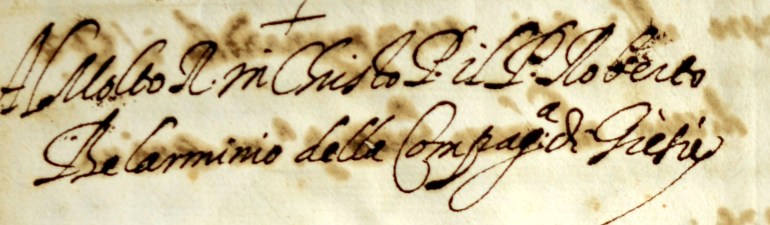 Al Molto R. in Christo P. il P. Roberto
Belarminio della Compag.ª di Giesù